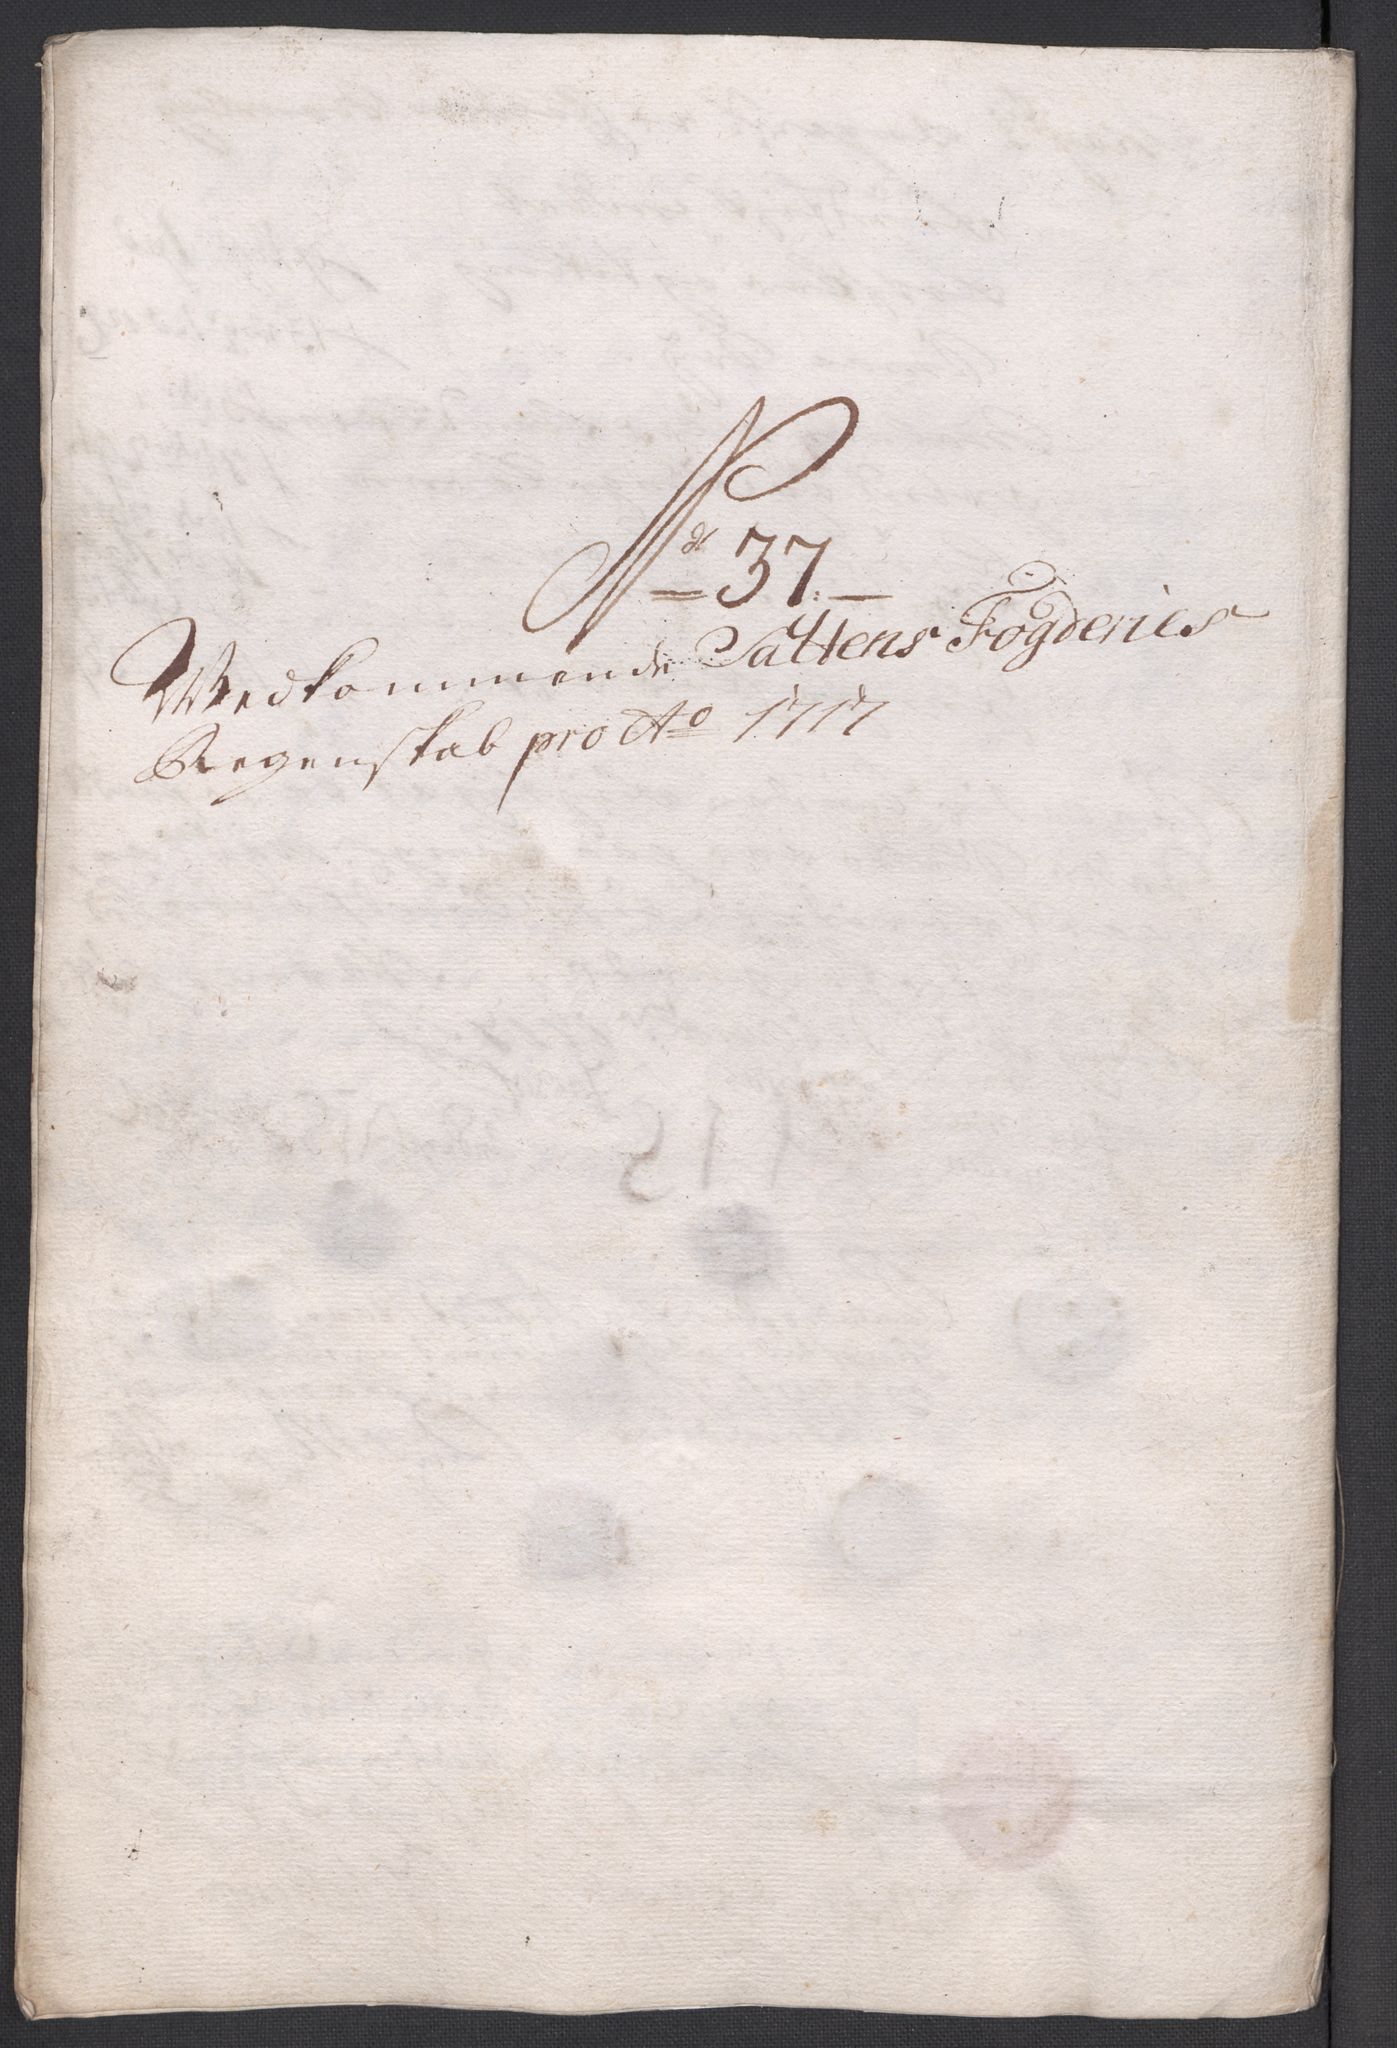 No 37.
Wedkommende Saltens Fogderies
Regenskab pro Ao 1717